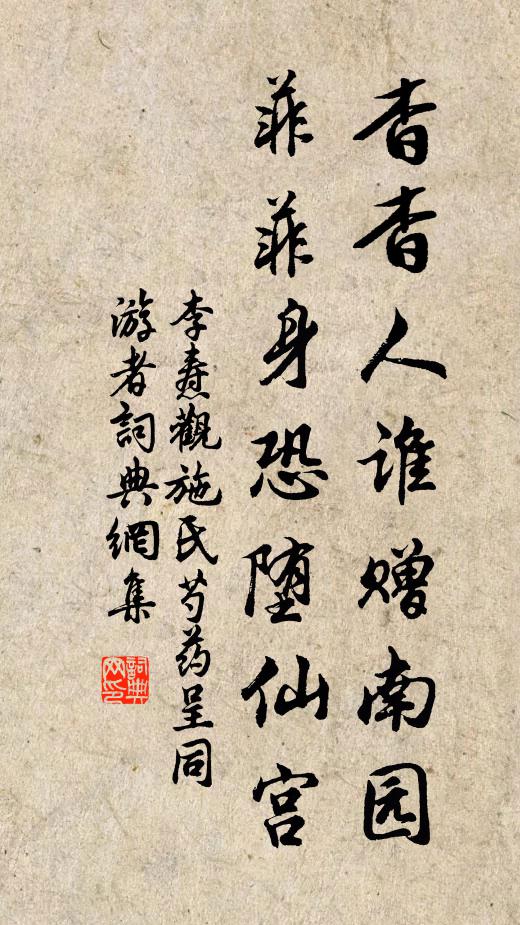 杳杳人谁赠南园
菲菲身恐堕仙宫
李焘觀施氏芍药呈同
游者詞典網集
詞典网印